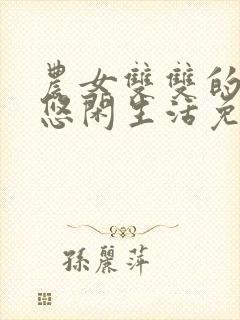 農女雙雙的
悠閑生活免
孫麗萍